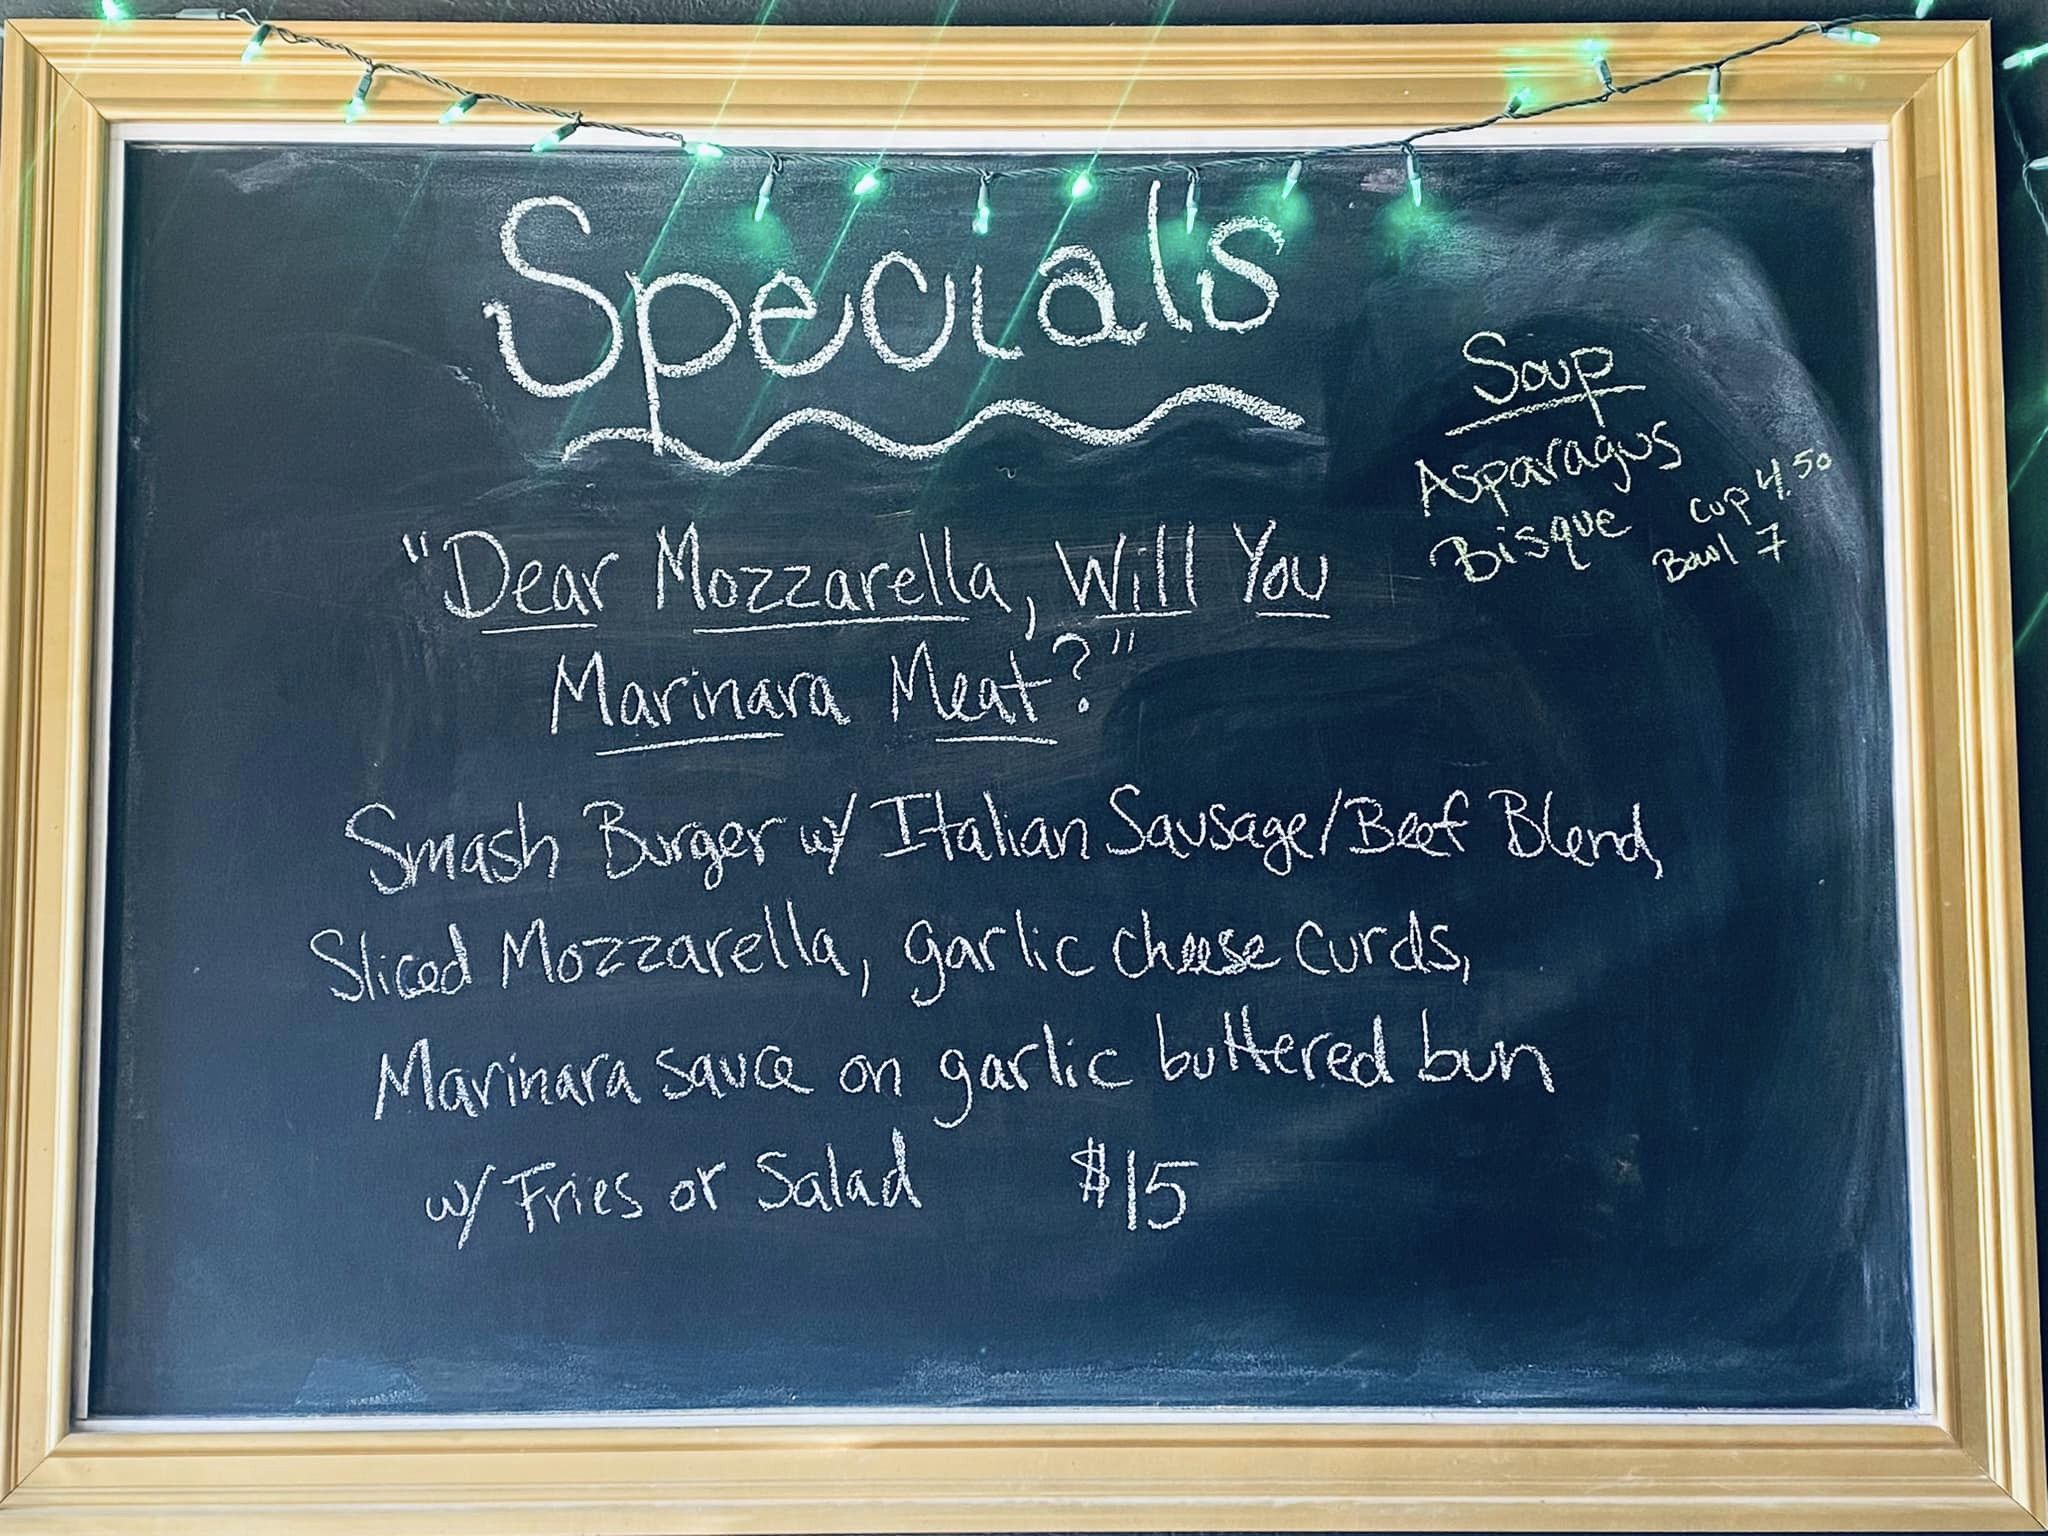 Specials
Soup
Asparagus
Bisque
Cup 4.50
Bowl 7
"Dear Mozzarella, Will You
Marinara Meat?"
Smash Burger w/ Italian Sausage/Beef Blend,
Sliced Mozzarella, garlic cheese curds,
Marinara sauce on garlic buttered bun
w/ Fries or Salad $15